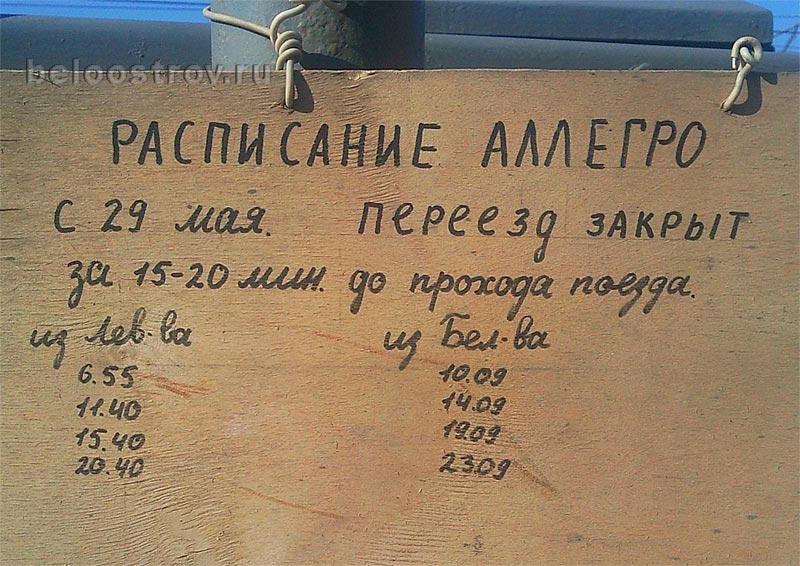 beloostrov.ru
РАСПИСАНИЕ АЛЛЕГРО
С 29 мая. ПЕРЕЕЗД ЗАКРЫТ
за 15-20 мин. до прохода поезда.
из Лев-ва из Бел-ва
6.55 10.09
11.40 14.09
15.40 19.09
20.40 23.09